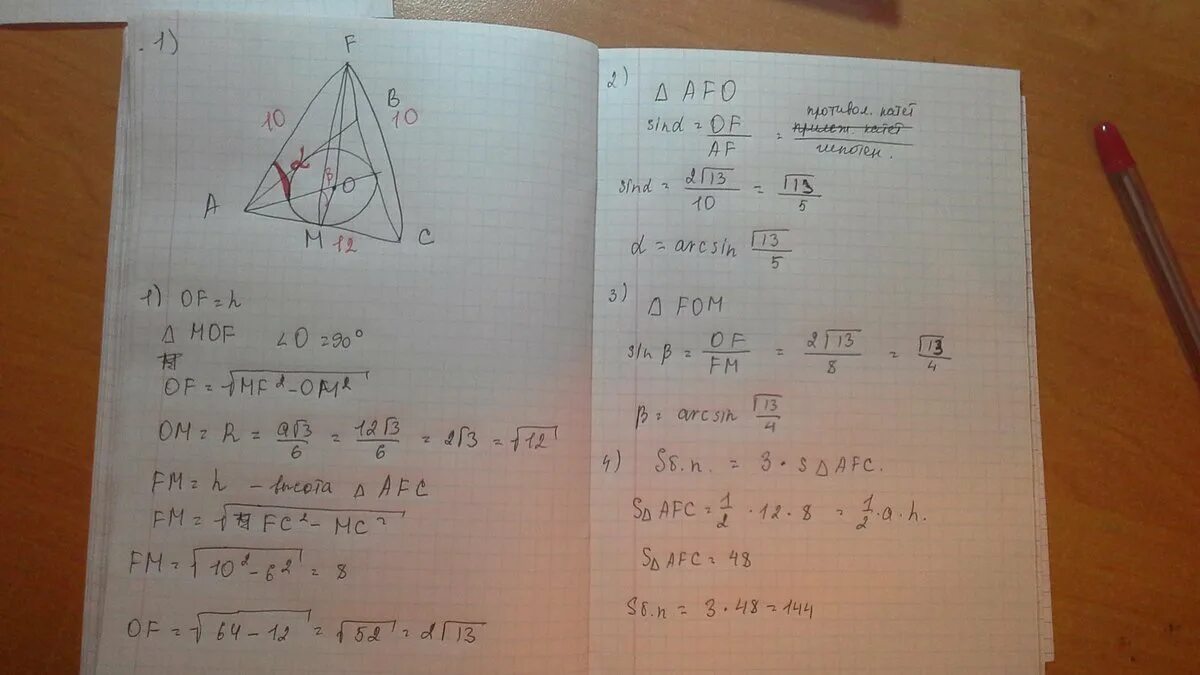 1)
F
B
10
10
α
β
O
A
M
12
C
1) OF = h
Δ MOF ∠O = 90°
OF = √MF² - OM²
OM = R = a√3/6 = 12√3/6 = 2√3 = √12
FM = h - высота Δ AFC
FM = √FC² - MC²
FM = √10² - 6² = 8
OF = √64 - 12 = √52 = 2√13
2)
Δ AFO
sinα = OF/AF = противол. катет / прилеж. катет / гипотен.
sinα = 2√13/10 = √13/5
α = arcsin √13/5
3)
Δ FOM
sin β = OF/FM = 2√13/8 = √13/4
β = arcsin √13/4
4) Sб.п. = 3 · SΔAFC.
SΔ AFC = 1/2 · 12 · 8 = 1/2 · a · h.
SΔ AFC = 48
Sб.п = 3 · 48 = 144